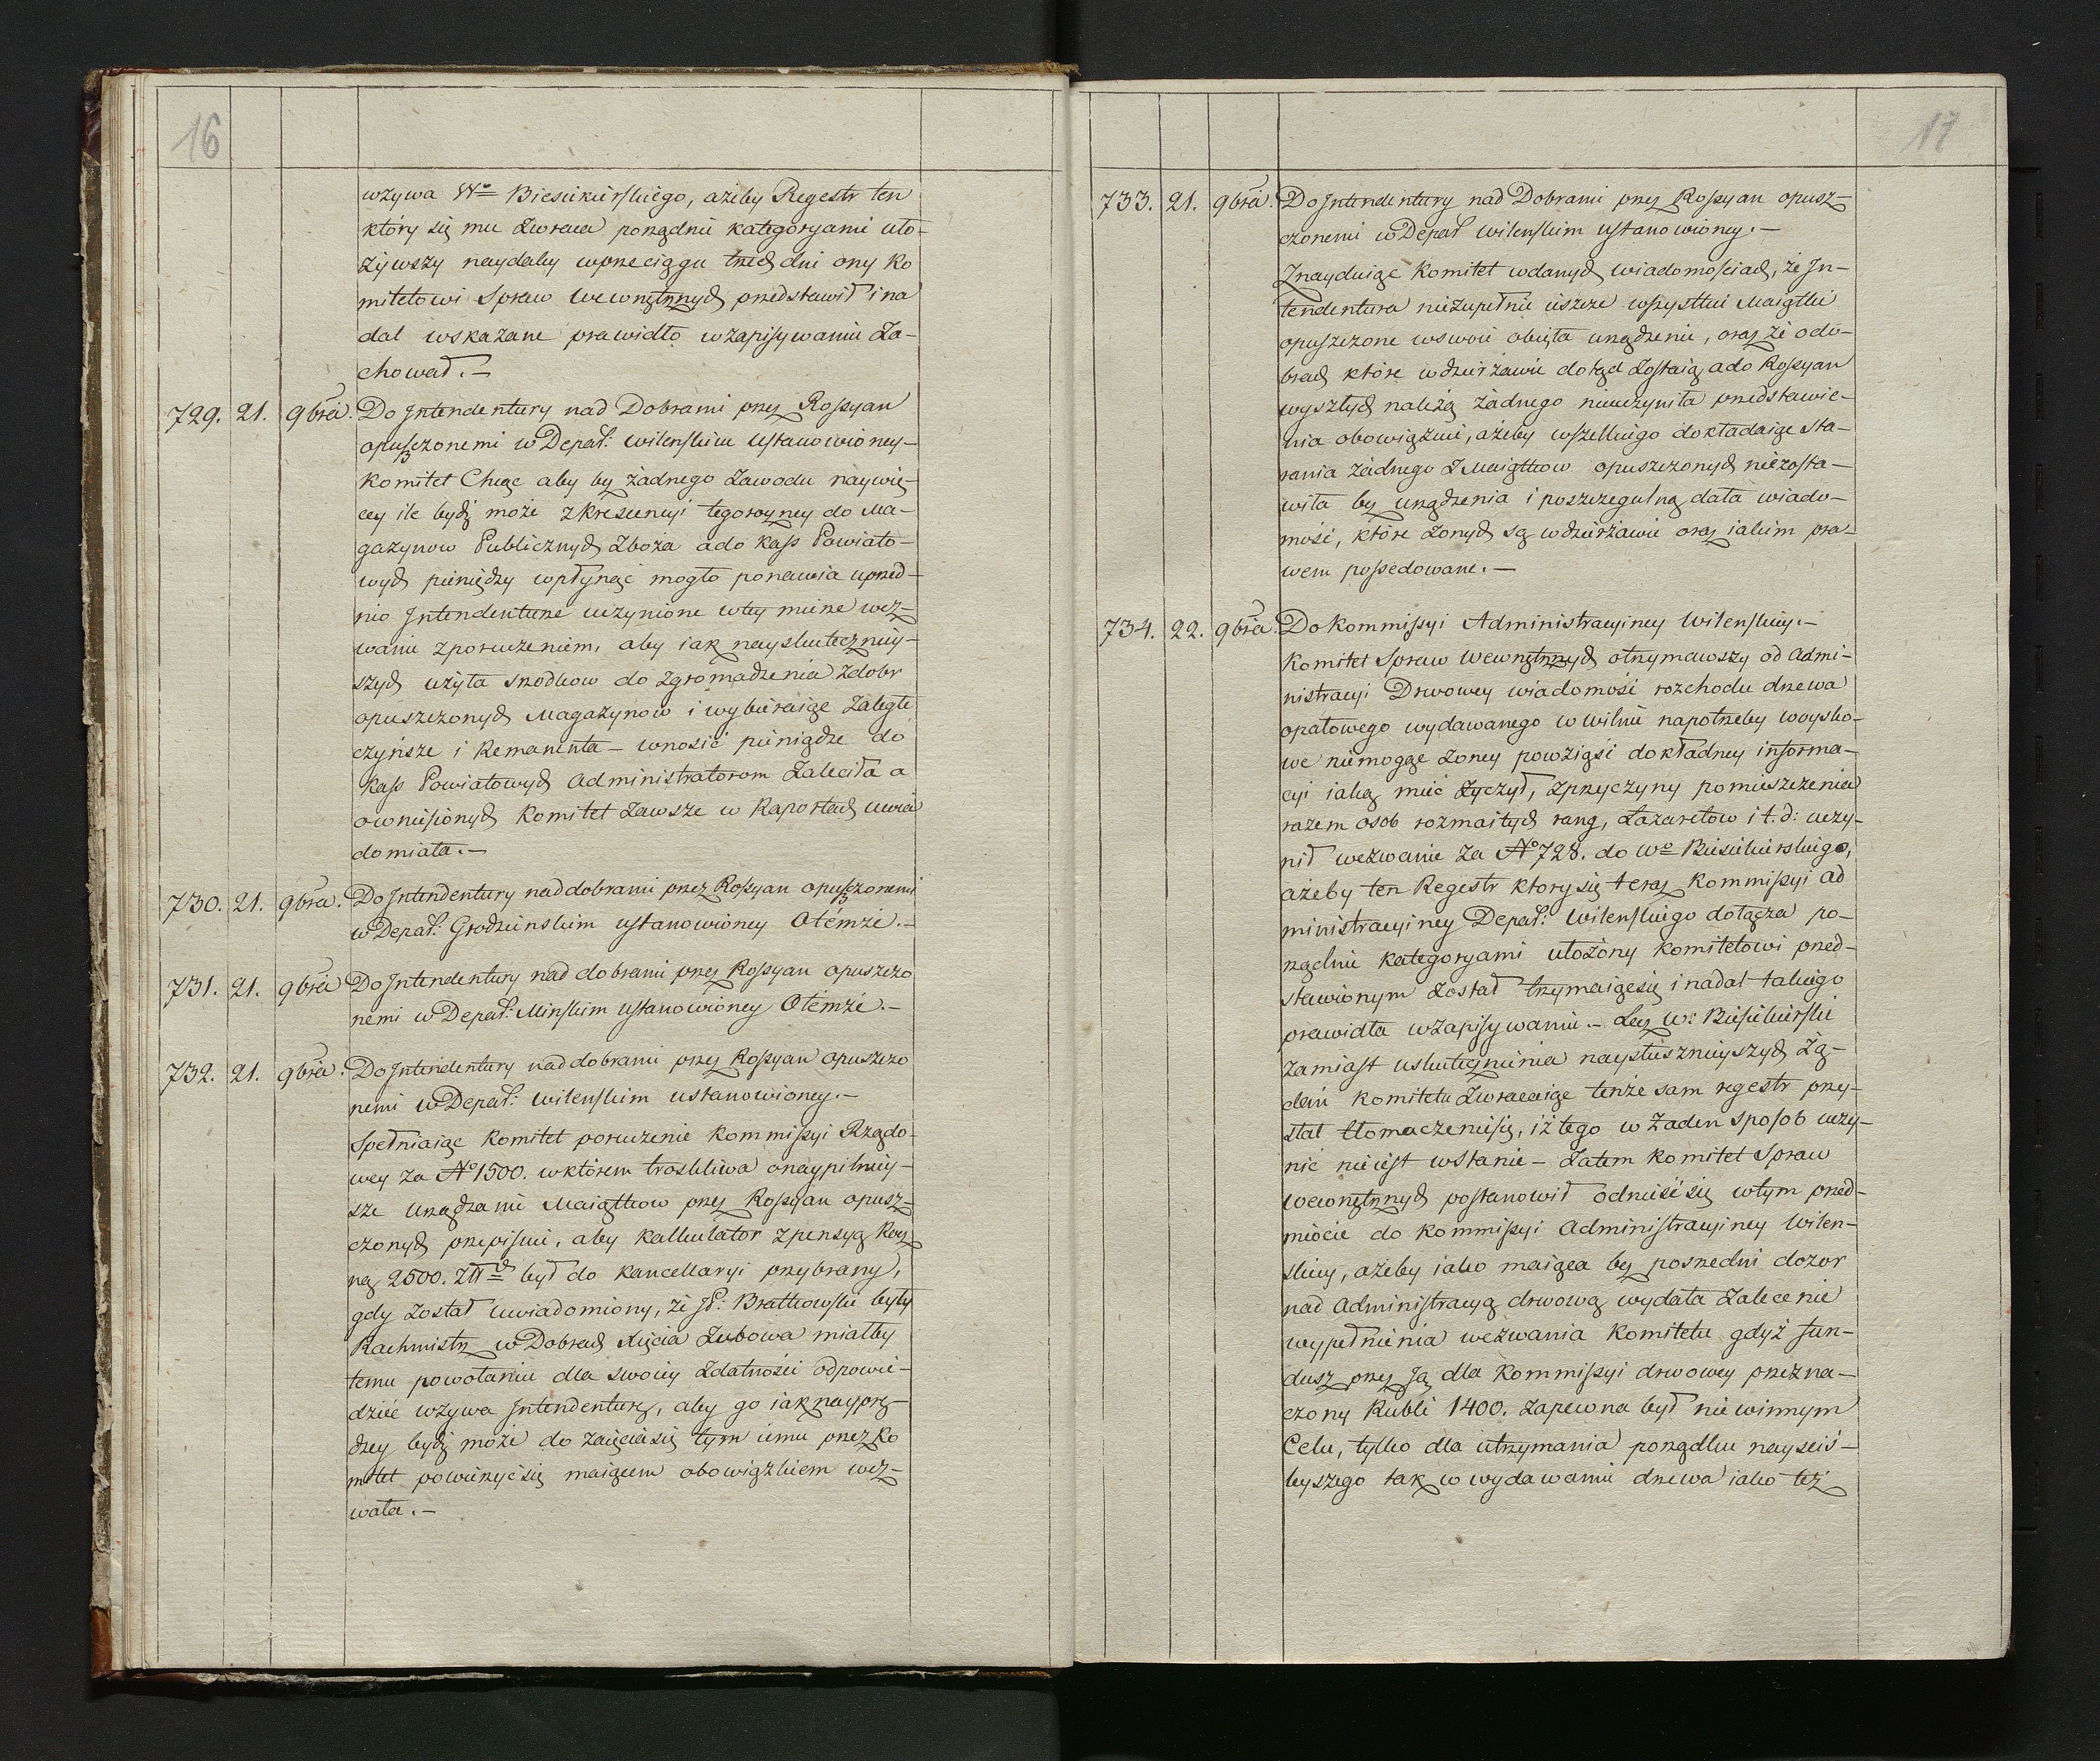 16
wzywa Wo Biesiekierskiego, ażeby Regestr ten
który się mu zwraca porządnie kategoryami uło-
żywszy naydaley wprzeciągu trzech dni ony Ko
mitetowi Spraw Wewnętrznych przedstawił i na
dal wskazane prawidło w zapisywaniu Za-
chował.—
729. 21. 9bra. Do Jntendentury nad Dobrami przez Rossyan
opuszczonemi w Depał: Wilenskim ustanowioney—
Komitet Chcąc aby bez żadnego Zawodu naywię-
cey ile bydź może z Krescencyi tegoroczney do Ma-
gazynow Publicznych Zboża a do Kass Powiato-
wych pieniędzy wpłynąć mogło ponawia uprzed-
nio Jntendenturze uczynione w tey mierze wez-
wanie z poruczeniem, aby iak nayskuteczniey-
szych użyła srzodkow do zgromadzenia z dobr
opuszczonych Magazynow i wybieraiąc Zaległe
czynsze i Remanenta — wnosić pieniądze do
Kass Powiatowych Administratorom Zaleciła a
o wniesionych Komitet Zawsze w Raportach uwia
domiała.—
730. 21. 9bra. Do Jntendentury nad dobrami przez Rossyan opuszczonemi
w Depał: Grodzienskim ustanowioney Otémże.—
731. 21. 9bra Do Jntendentury nad dobrami przez Rossyan opuszczo
nemi w Depał: Minskim ustanowioney Otémże.—
732. 21. 9bra. Do Jntendentury nad dobrami przez Rossyan opuszczo
nemi w Depał: Wilenskim ustanowioney.—
Spełniaiąc Komitet poruczenie Kommissyi Rządo-
wey Za No 1500. w którem troskliwa o naypilniey-
sze urządzenie Maiątkow przez Rossyan opusz-
czonych przepisuie, aby Kalkulator z pensyą Rocz
ną 2500. Złłch był do Kancellaryi przybrany,
gdy został uwiadomiony, że JP: Bratkowski były
Rachmistrz w Dobrach Xięcia Zubowa miałby
temu powołaniu dla swoiey Zdatności odpowie-
dzieć wzywa Jntendenturę, aby go iak nayprę-
dzey bydź może do zaięcia się tym iemu przez Ko
mitet powierzyć się maiącem obowiązkiem wez-
wała.—
17
733. 21. 9bra. Do Jntendentury nad Dobrami przez Rossyan opusz-
czonemi w Depał Wilenskim ustanowioney.—
Znayduiąc Komitet w danych wiadomościach, że Jn-
tendentura niezupełnie ieszcze wszystkie Maiątki
opuszczone w swoie obięła urządzenie, oraz że o do-
brach które w dzierżawie dotąd Zostaią a do Rossyan
wyszłych należą żadnego nieuczyniła przedstawie-
nia obowiązuie, ażeby wszelkiego dokładaiąc sta-
rania żadnego z Maiątkow opuszczonych niezosta-
wiła bez urządzenia i poszczegulną dała wiado-
mość, które z onych są w dzierżawie oraz iakim pra-
wem possedowane.—
734. 22. 9bra. Do Kommissyi Administracyiney Wilenskiey.—
Komitet Spraw Wewnętrznych otrzymawszy od Admi-
nistracyi Drwowey wiadomość rozchodu drzewa
opałowego wydawanego w Wilnie na potrzeby woysko-
we niemogąc z oney powziąść dokładney informa-
cyi iaką mieć życzył, z przyczyny pomieszczenia
razem osob rozmaitych rang, Lazaretow i t. d: uczy-
nił wezwanie Za No 728. do Wo Biesiekierskiego,
ażeby ten Regestr ktory się teraz Kommissyi Ad
ministracyiney Depał: Wilenskiego dołącza po-
rządnie kategoryami ułożony Komitetowi przed-
stawionym został trzymaiąc się i nadal takiego
prawidła w zapisywaniu.— Lecz W: Biesiekierski
zamiast uskutecznienia naysłusznieyszych Żą-
dań Komitetu zwracaiąc tenże sam regestr przy-
słał tłomaczenie się, iż tego w żaden sposob uczy-
nić nie iest w stanie — Zatem Komitet Spraw
Wewnętrznych postanowił odnieść się w tym przed-
miocie do Kommissyi Administracyiney Wilen-
skiey, ażeby iako maiąca bez posredni dozor
nad Administracyą drwową wydała Zalecenie
wypełnienia wezwania Komitetu gdyż fun-
dusz przez Ją dla Kommissyi drwowey przezna-
czony Rubli 1400. zapewna był nie w innym
Celu, tylko dla utrzymania porządku nayści-
leyszego tak w wydawaniu drzewa iako też